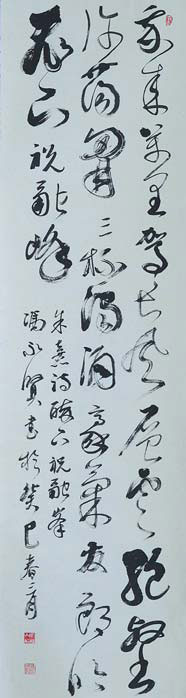 我來萬里駕長風層雲絕壑
許蕩胸三杯濁酒豪氣發朗吟
飛下祝融峰
朱熹詩醉下祝融峯
馮永賢書於癸巳春二月